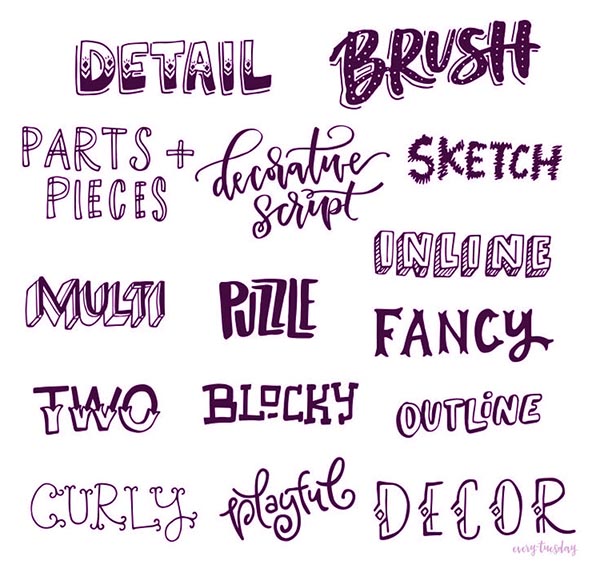 DETAIL
BRUSH
PARTS +
PIECES
decorative
script
SKETCH
INLINE
MULTI
PUZZLE
FANCY
TWO
BLOCKY
OUTLiNE
CURLY
playful
DECOR
every-tuesday